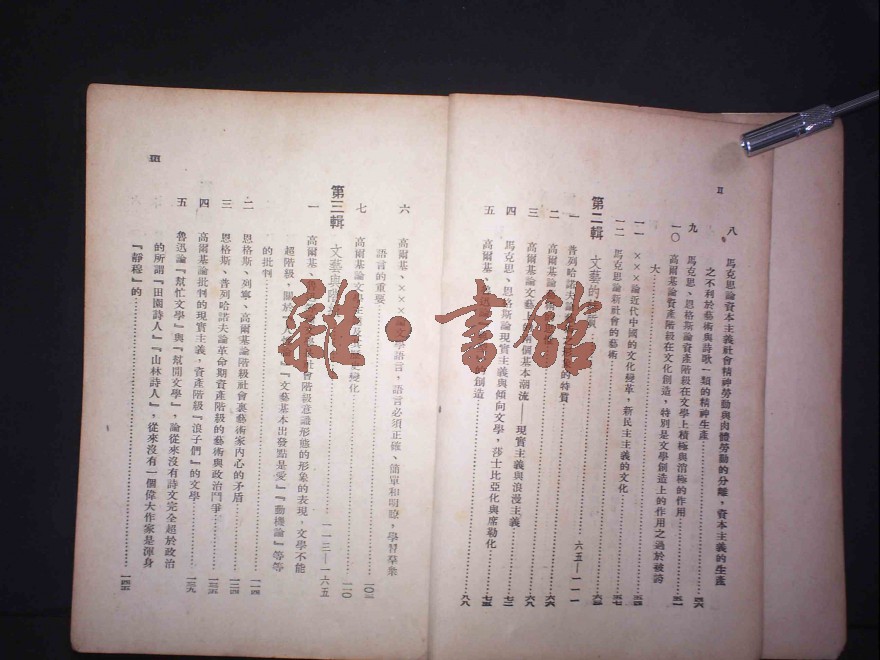 II
八 馬克思論資本主義社會精神勞動與肉體勞動的分離，資本主義的生產
之不利於藝術與詩歌一類的精神生產……四六
九 馬克思、恩格斯論資產階級在文學上積極與消極的作用……五一
一〇 高爾基論資產階級在文化創造，特別是文學創造上的作用之過於被誇
大……五四
一一 ×××論近代中國的文化變革，新民主主義的文化……五七
一二 馬克思論新社會的藝術……六三
第二輯 文藝的……六五—一一一
一 普列哈諾夫論……的特質……六六
二 高爾基論……六八
三 高爾基論文藝上的兩個基本潮流——現實主義與浪漫主義……七二
四 馬克思、恩格斯論現實主義與傾向文學，莎士比亞化與席勒化……七五
五 高爾基、魯迅論……的創造……八八
六 高爾基、×××論文學語言，語言必須正確、簡單和明瞭，學習羣衆
語言的重要……一〇三
七 高爾基論文學……變化……一一〇
第三輯 文藝與階……一一三—一六五
一 高爾基、……社會階級意識形態的形象的表現，文學不能
超階級，關於『人……』『文藝基本出發點是愛』『動機論』等等
的批判……一一四
二 恩格斯、列寧、高爾基論階級社會裏藝術家內心的矛盾……一二四
三 恩格斯、普列哈諾夫論革命期資產階級的藝術與政治鬥爭……
四 高爾基論批判的現實主義，資產階級『浪子們』的文學……一三九
五 魯迅論『幫忙文學』與『幫閒文學』，論從來沒有詩文完全超於政治
的所謂『田園詩人』『山林詩人』，從來沒有一個偉大作家是渾身
『靜穆』的……一四五
III
雜·書館